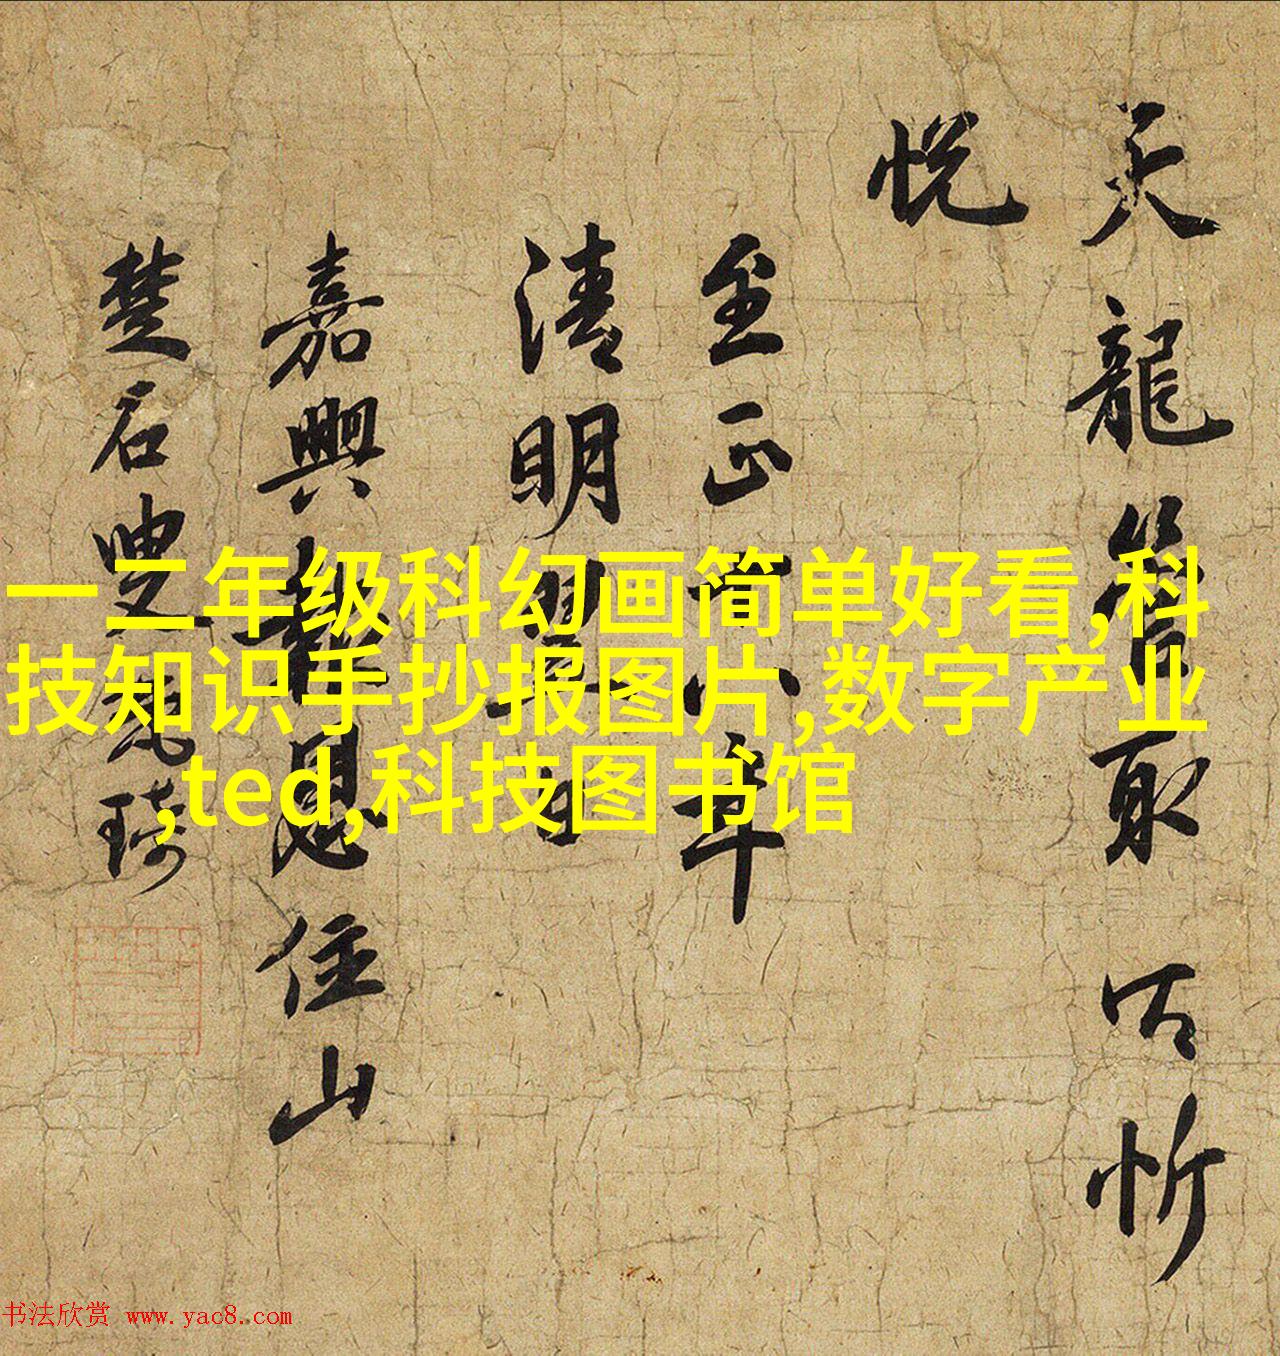 天龍管取以忻
悦
至正年
清明日
嘉興報恩住山
楚石叟梵琦
一二年级科幻画简单好看,科
技知识手抄报图片,数字产业
,ted,科技图书馆
书法欣赏 www.yac8.com